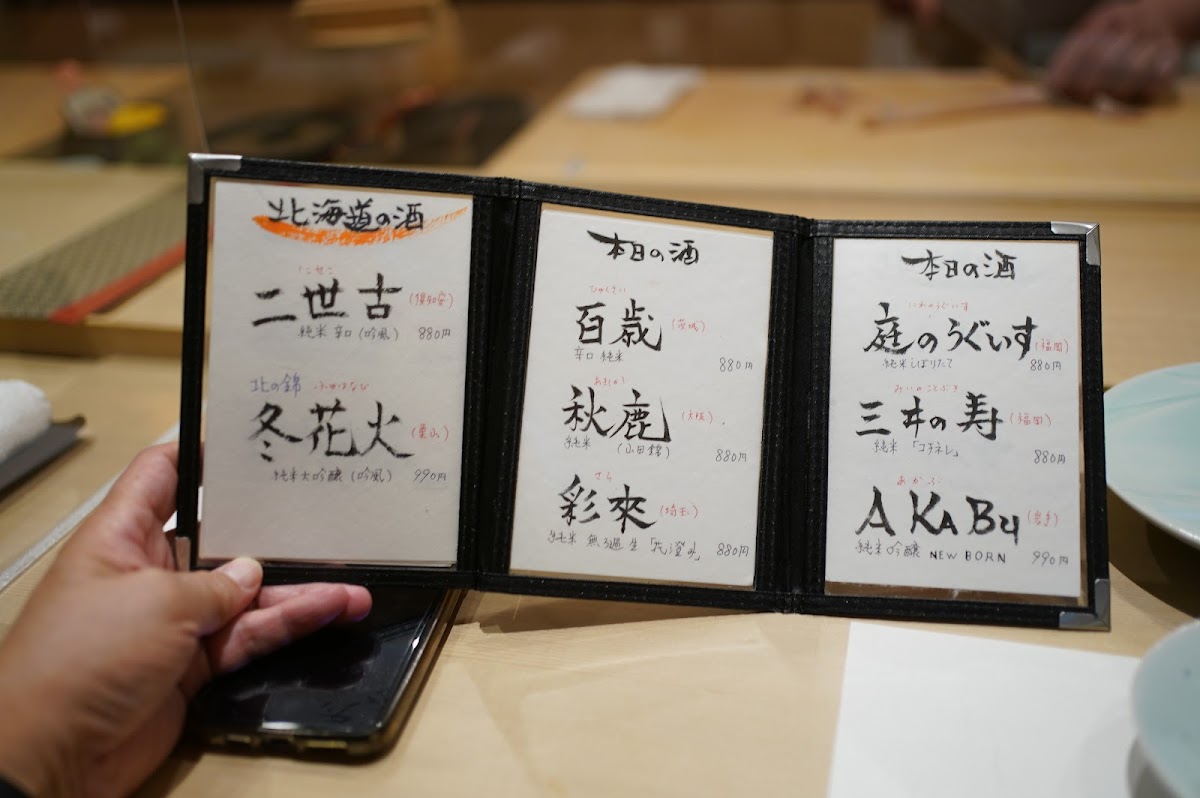 北海道の酒
にせこ
二世古 (倶知安)
純米 辛口 (吟風) 880円
北の錦 ふゆはなび
冬花火 (栗山)
純米大吟醸 (吟風) 990円
本日の酒
ひゃくさい
百歳 (茨城)
辛口 純米
880円
あきしか
秋鹿 (大阪)
純米 (山田錦) 880円
さら
彩來 (埼玉)
純米 無ろ過 生「花澄み」 880円
本日の酒
にわのうぐいす
庭のうぐいす (福岡)
純米しぼりたて 880円
みいのことぶき
三井の寿 (福岡)
純米 「コチネレ」 880円
あかぶ
AKABU (岩手)
純米吟醸 NEW BORN 990円